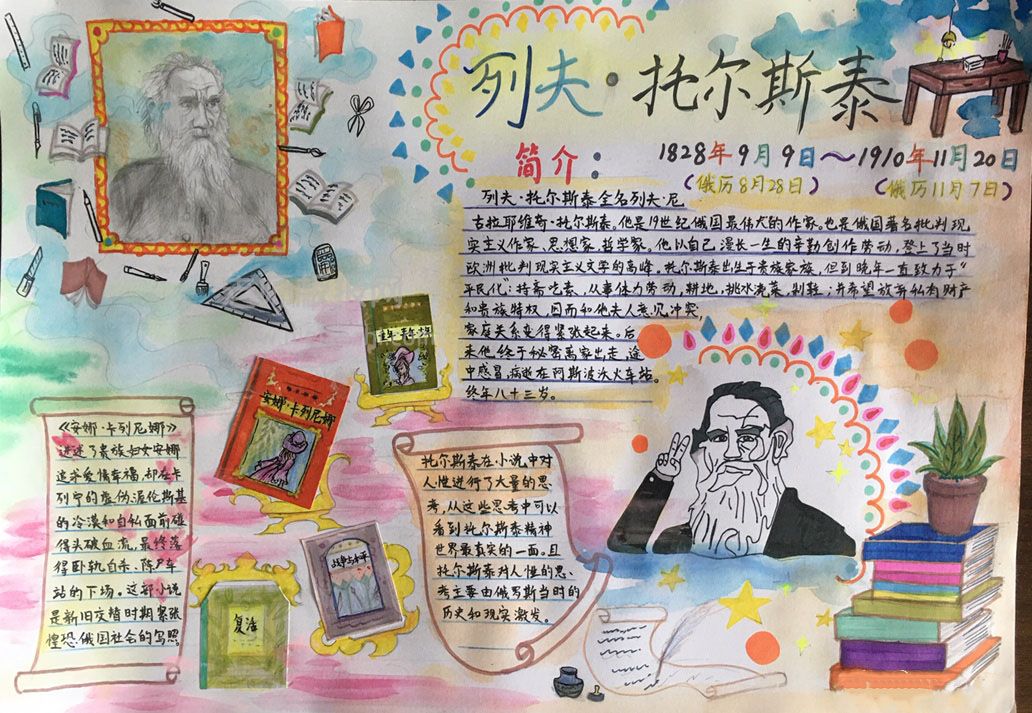 列夫·托尔斯泰
简介:
1828年9月9日~1910年11月20日
(俄历8月28日)
(俄历11月7日)
列夫·托尔斯泰全名列夫·尼
古拉耶维奇·托尔斯泰。他是19世纪俄国最伟大的作家。也是俄国著名批判现
实主义作家、思想家、哲学家。他以自己漫长一生的辛勤创作劳动,登上了当时
欧洲批判现实主义文学的高峰。托尔斯泰出生于贵族家族,但到晚年一直致力于“
平民化”:持斋吃素、从事体力劳动,耕地、挑水浇菜、制鞋;并希望放弃私有财产
和贵族特权,因而和他夫人意见冲突,
家庭关系变得紧张起来。后
来他终于秘密离家出走,途
中感冒,病逝在阿斯波沃火车站。
终年八十三岁。
童年·青年·少年
安娜·卡列尼娜
战争与和平
复活
《安娜·卡列尼娜》
讲述了贵族妇女安娜
追求爱情幸福,却在卡
列宁的虚伪渥伦斯基
的冷漠和自私面前碰
得头破血流,最终落
得卧轨自杀、陈尸车
站的下场。这部小说
是新旧交替时期紧张
惶恐俄国社会的写照。
托尔斯泰在小说中对
人性进行了大量的思
考,从这些思考中可以
看到托尔斯泰精神
世界最真实的一面。且
托尔斯泰对人性的思
考主要由俄罗斯当时的
历史和现实激发。